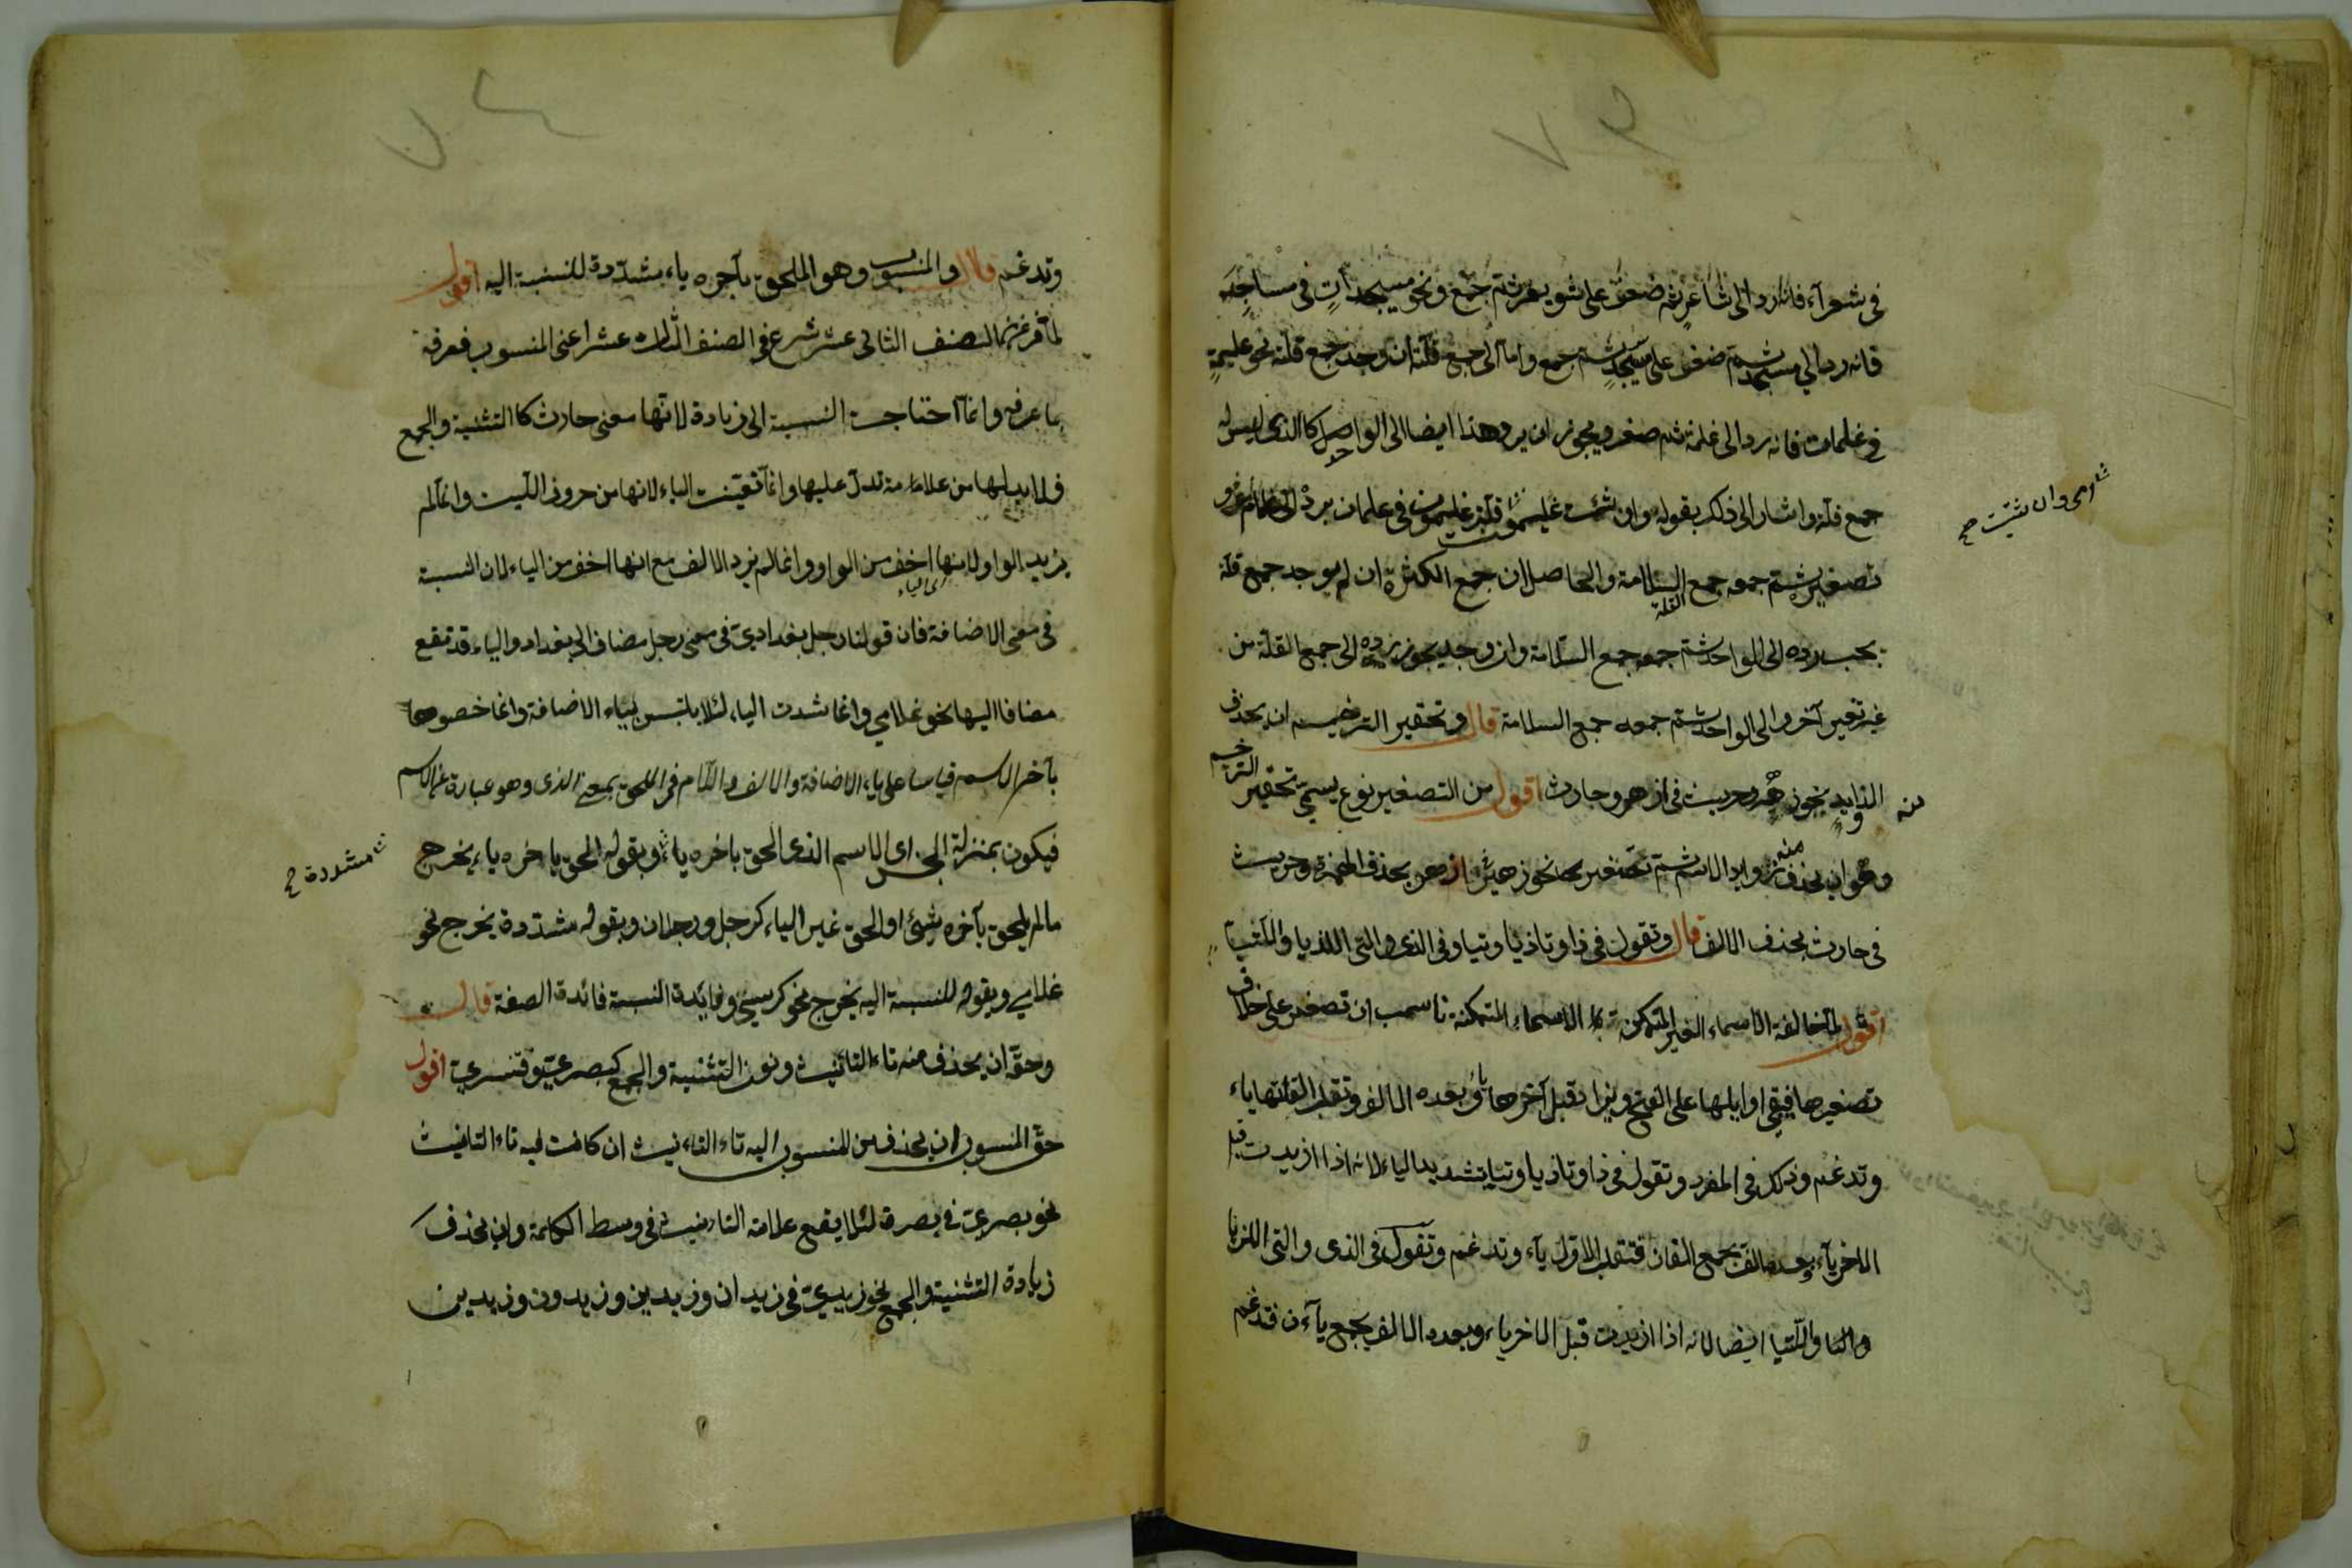 ٧٣
فى شعرآء فانه رد الى شاعر ثم صغر على شويعر ثم جمع ونحو مسيجدات فى مساجد
فانه رد الى مسجد ثم صغر على مسيجد ثم جمع واما الى جمع قلته ان وجد جمع قلة نحو غليمة
فى غلمان فانه رد الى غلمة ثم صغر ويجوز ان يرد هذا ايضا الى الواحد كالذى ليس له
جمع قلة واشار الى ذلك بقوله وان شئت قلت غليمون فى غلمان برده الى غلام و
تصغيره ثم جمعه جمع السلامة والحاصل ان جمع الكثرة ان لم يوجد جمع قلة
يجب رده الى الواحد ثم جمعه جمع السلامة وان وجد يجوز رده الى جمع القلة من
غير تغيير آخر والى الواحد ثم جمعه جمع السلامة قال وتحقير الترخيم ان يحذف
منه الزوايد نحو زهير وحريث فى ازهر وحارث اقول من التصغير نوع يسمى تحقير الترخيم
وهو ان يحذف منه زوايد الاسم ثم تصغير نحو زهير فى ازهر بحذف الهمزة وحريث
فى حارث بحذف الالف قال وتقول فى ذا وتا ذيا وتيا وفى الذى والتى اللذيا واللتيا
اقول لما خالفة الاسماء الغير المتمكنة الاسماء المتمكنة ناسب ان تصغر على خلاف
تصغيرها فيبقى اوايلها على الفتح ويزاد قبل آخرها ياء وبعده الالف وتقلب الفاتها ياء
وتدغم وذلك فى المفرد وتقول فى ذا وتا ذيا وتيا بتشديد الياء لانه اذا ازيدت قبل
الاخر ياء وبعده الف يجمع الفان فتقلب الاول ياء وتدغم وتقول فى الذى والتى اللذيا
واللتيا ايضا لانه اذا ازيدت قبل الاخر ياء وبعده الالف يجمع ياءن فتدغم
اى وان شئت صح
٧٤
وتدغم قال والمنسوب وهو الملحق بآخره ياء مشدّدة للنسبة اليه اقول
لما فرغ من الصنف الثانى عشر شرع فى الصنف الثالث عشر اعنى المنسوب فعرفه
بما عرفه وانما احتاجت النسبة الى زيادة لانها معنى حادث كالتثنية والجمع
فلا بد لها من علامة تدل عليها وانما تعينت الياء لانها من حروف اللين وانما لم
يزيد الواو لانها اى الياء اخف من الواو وانما لم يزد الالف مع انها اخف من الياء لان النسبة
فى معنى الاضافة فان قولنا رجل بغدادى فى معنى رجل مضاف الى بغداد والياء قد تقع
مضافا اليها نحو غلامى وانما شددت الياء لئلا يلتبس بياء الاضافة وانما خصوها
بآخر الاسم قياسا على ياء الاضافة والالف واللام فى الملحق بمعنى الذى وهو عبارة عن الاسم
فيكون بمنزلة الجنس اى الاسم الذى الحق باخره ياء وبقوله الملحق باخره ياء يخرج
مالم يلحق بآخره شئ او الحق غير الياء كرجل ورجلان وبقوله مشددة يخرج نحو
غلامى وبقوله للنسبة اليه يخرج نحو كرسى وفائدة النسبة فائدة الصفة قال
وحقه ان يحذف منه تاء التانيث ونون التثنية والجمع كبصرىّ وقنسرىّ اقول
حق المنسوب ان يحذف من المنسوب اليه تاء التانيث ان كانت فيه تاء التانيث
نحو بصرى فى بصرة لئلا يقع علامة التانيث فى وسط الكلمة وان يحذف
زيادة التثنية والجمع نحو زيدى فى زيدان وزيدين وزيدون وزيدين
مشددة صح